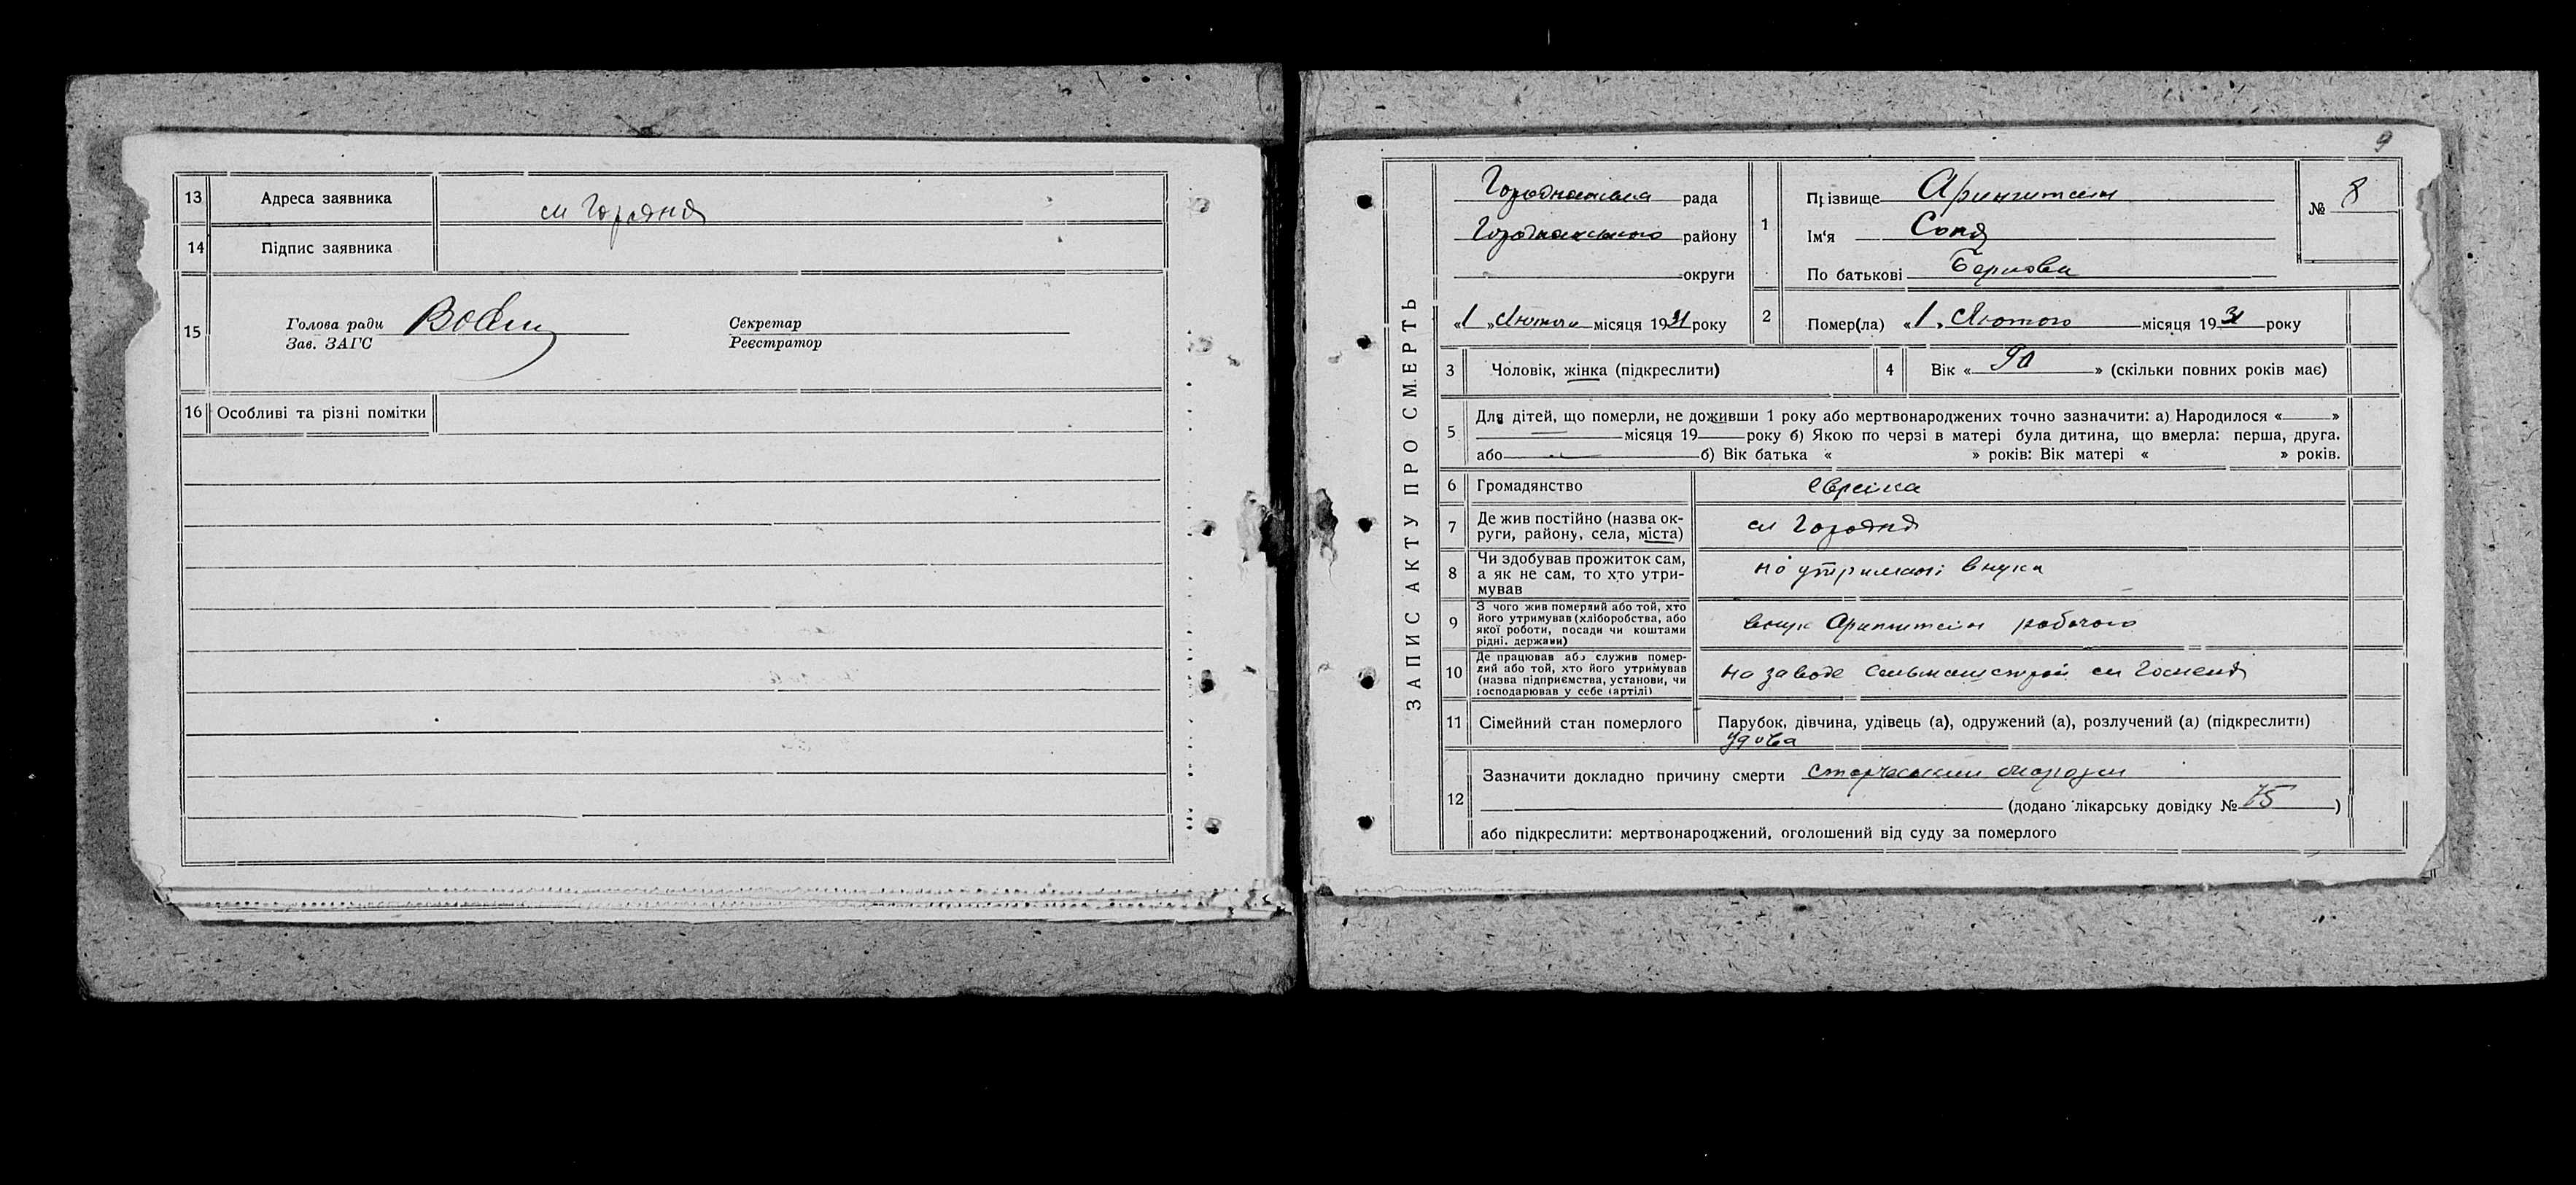 13 Адреса заявника м Городня
14 Підпис заявника
15 Голова ради
Зав. ЗАГС
Секретар
Реєстратор
16 Особливі та різні помітки
9
ЗАПИС АКТУ ПРО СМЕРТЬ
Городнянська рада
Городнянського району
округи
«1» Лютого місяця 1931 року
1 Прізвище
Ім'я Соня
По батькові Беркова
№ 8
2 Помер(ла) «1» Лютого місяця 1931 року
3 Чоловік, жінка (підкреслити)
4 Вік «90» (скільки повних років має)
5 Для дітей, що померли, не доживши 1 року або мертвонароджених точно зазначити: а) Народилося « »
місяця 19 року б) Якою по черзі в матері була дитина, що вмерла: перша, друга.
або б) Вік батька « » років: Вік матері « » років.
6 Громадянство єврейка
7 Де жив постійно (назва ок-
руги, району, села, міста) м Городня
8 Чи здобував прожиток сам,
а як не сам, то хто утри-
мував на утримані внука
9 З чого жив померлий або той, хто
його утримував (хліборобства, або
якої роботи, посади чи коштами
рідні, держави) внук робочого
10 Де працював або служив помер-
лий або той, хто його утримував
(назва підприємства, установи, чи
господарював у себе (артілі) на заводе Сельмашстрой м Гомень
11 Сімейний стан померлого Парубок, дівчина, удівець (а), одружений (а), розлучений (а) (підкреслити)
удова
12 Зазначити докладно причину смерти
(додано лікарську довідку № 75)
або підкреслити: мертвонароджений, оголошений від суду за померлого